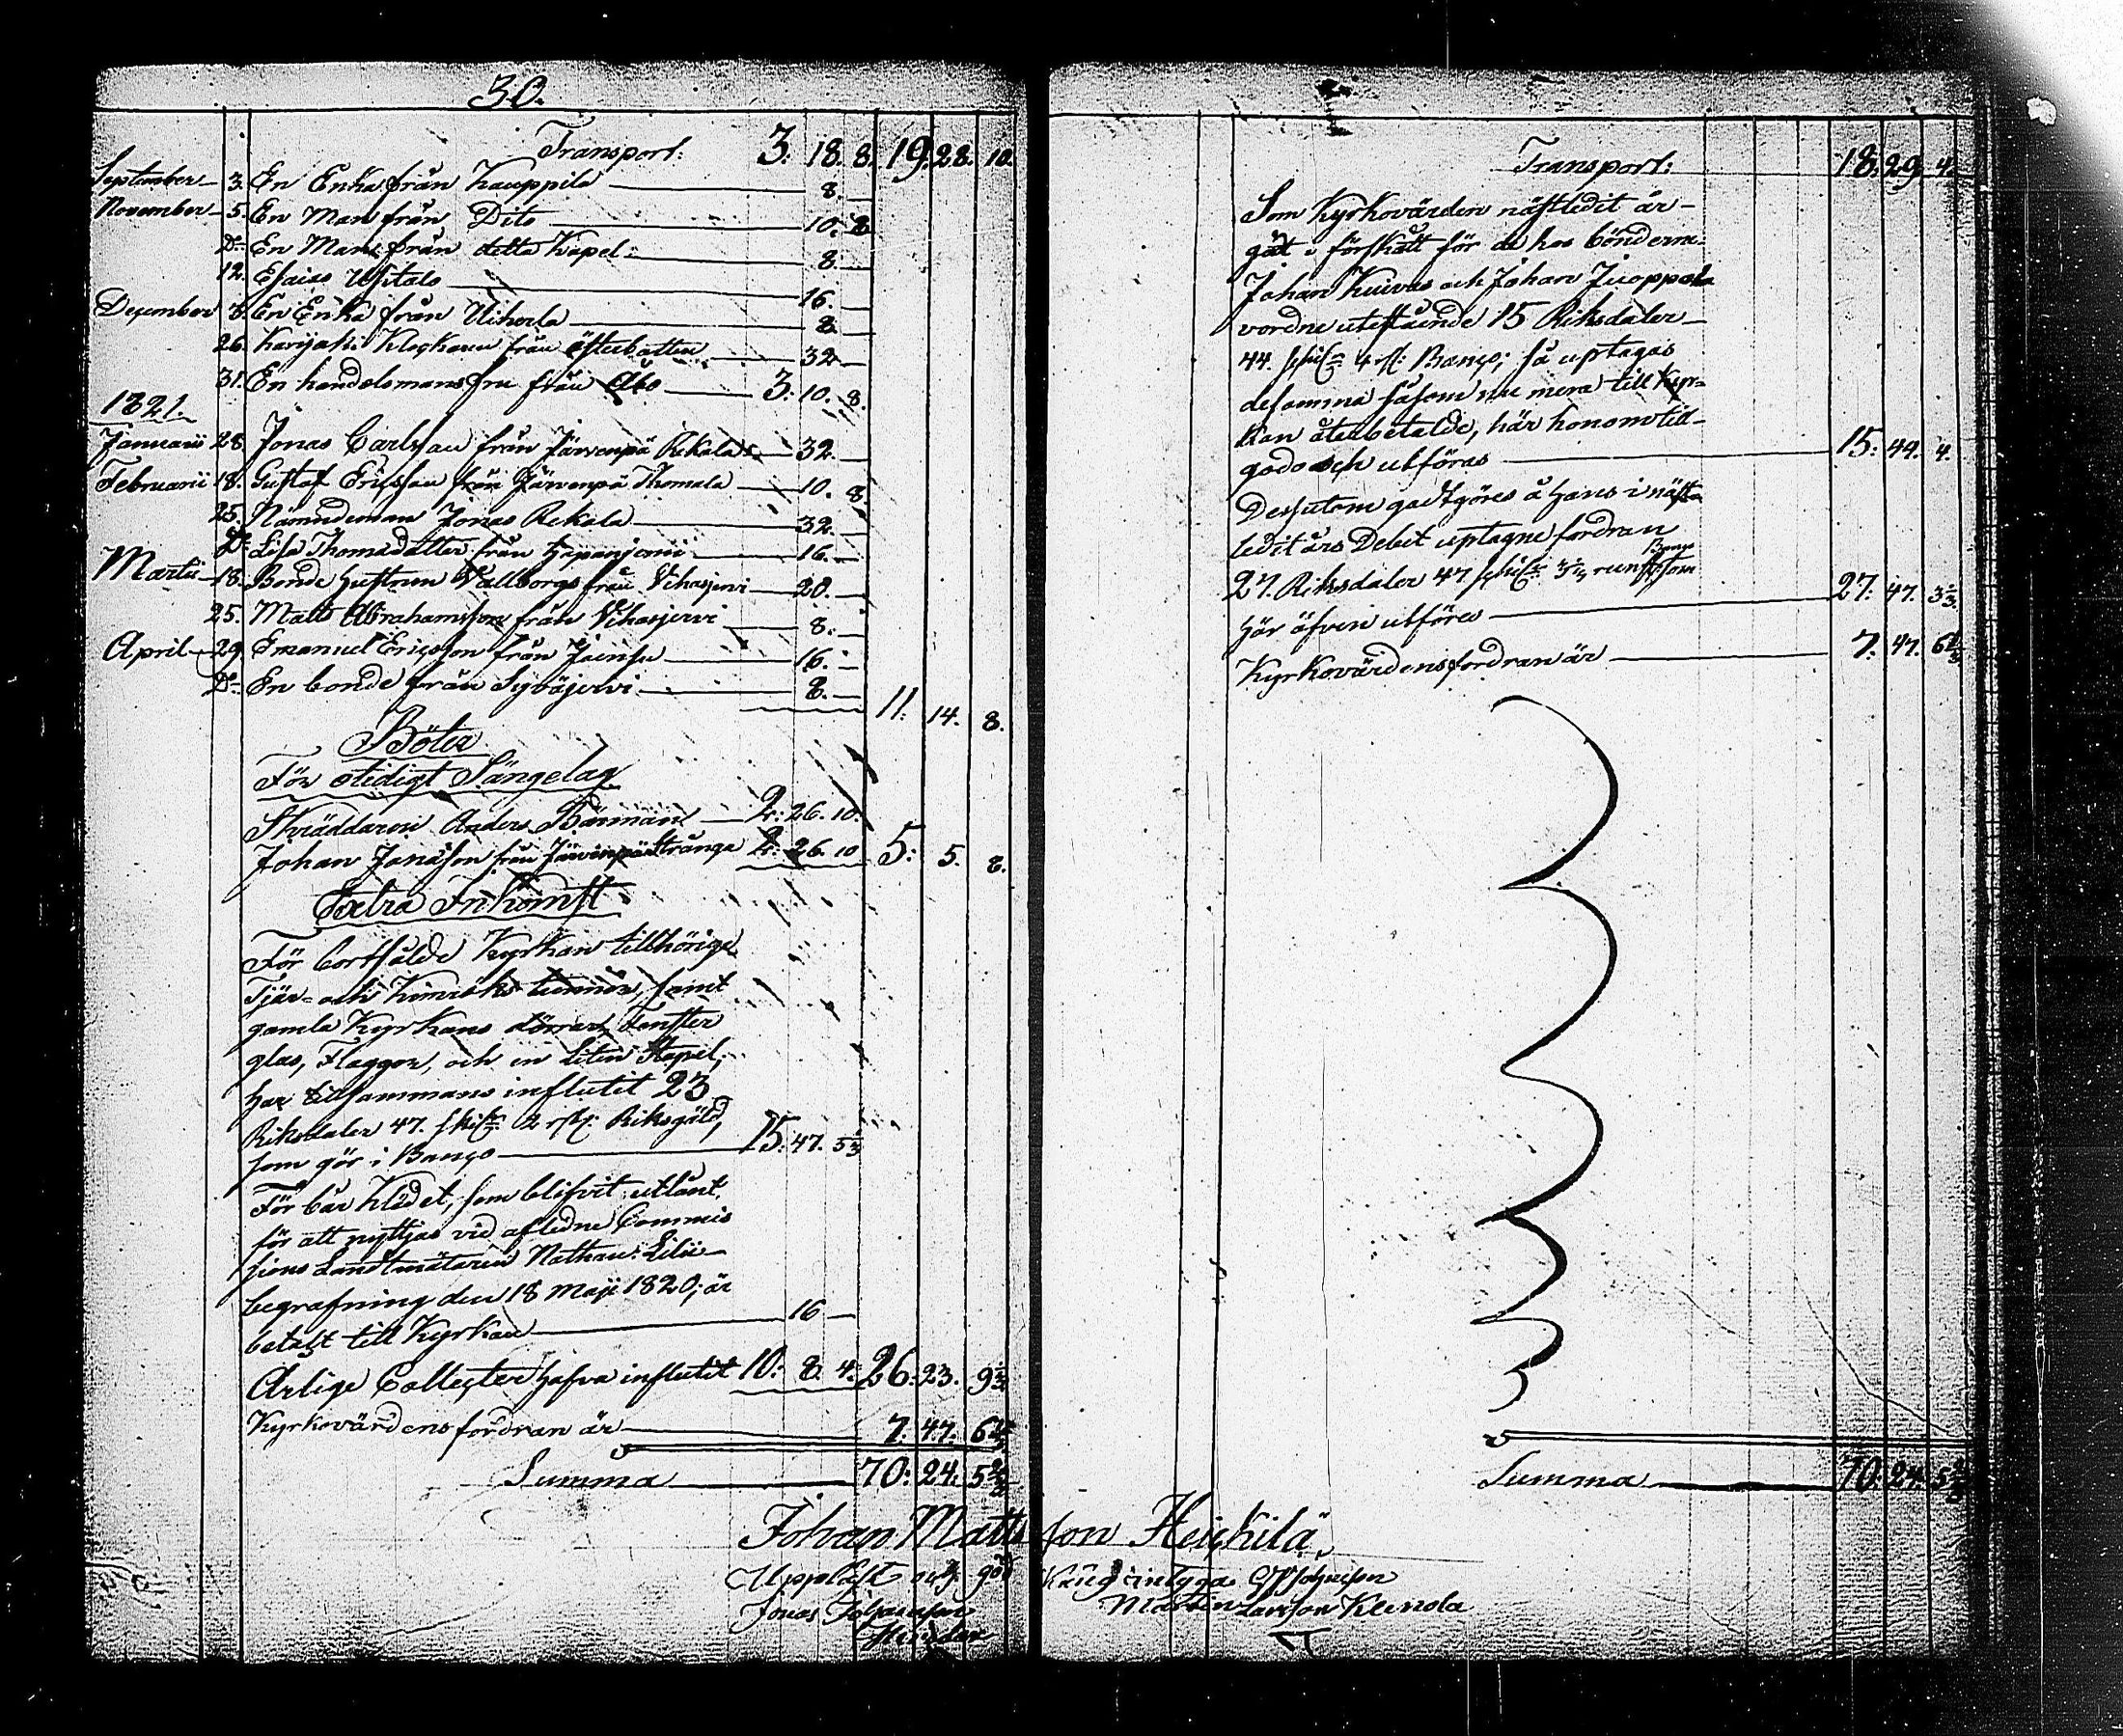 30.
Transport: 3. 18. 8. 19. 28. 10.
September 3. En Enka från Kauppila 8.
November 5. En Man från Dito 10. 8
Do En Man från detta Kapel 8.
12. Esaias Ustalo 16.
December 8. En Enka från Uiherla 8.
26. Karijaki Kleçkaren från österbotten 32
31. En handelsmansfru från Åbo 3. 10. 8.
1821.
Januarii 28. Jonas Carlsson från Järvenpä Rekala 32.
Februarii 18. Gustaf Ericsson från Järvenpä Thomala 10. 8.
25. Nämndeman Jonas Rekala 32.
Do Lisa Thomasdotter från 16.
Martii 18. Bonde Hustrun Vallborg från Vihasjervi 20.
25. Matts Abrahamsson från Vihasjervi 8.
April 29. Emanuel Ericsson från 16.
Do En bonde från Syväjervi 8. 11. 14. 8.
Böter
För otidigt Sängelag
Skräddaren Anders Bärman 2: 26. 10.
Johan Jonasson från Järvenpä Stränga 2: 26. 10 5: 5. 8.
Extra Inkomst
För bortsålde Kyrkan tillhörige
Tjär- och Kimröks tunnor, samt
gamla Kyrkans dörrar, Fenster
glas, Flaggor, och en liten Stapel,
har tillsammans influtit 23
Riksdaler 47. skil: 2 rst: Riksgäld,
som gör i Banço 15: 47. 5 1/3
För bår Klädet, som blifvit utlånt
för att nyttjas vid afledne Commis
sions Landtmätaren Nathan: Lilie
begrafning den 18 Maji 1820; är
betalt till Kyrkan 16
Årlige Collecter hafva influtit 10: 8. 4: 26: 23. 9 1/3
Kyrkovärdens fordran är 7. 47. 6
Summa 70: 24: 5
Transport: 18. 29. 4.
Som Kyrkovärden nästledit år
gått i förskått för de hos bönderna
Johan Kuivas och Johan Juoppala
vordne utestående 15 Riksdaler
44. skil: 4 rst: Banço; så uptagas
desamma såsom nu mera till Kyr-
kan återbetalde, här honom till-
godo och utföras 15: 44. 4.
Dessutom godtgöres å hans i nästa
ledit års Debet uptagne fordran
27. Riksdaler 47 skil: 3 1/3 runst: Banço som
här äfven utföres 27: 47. 3 1/3
Kyrkovärdens fordran är 7. 47. 6
Summa 70. 24. 5
Johan Mattsson Heickilä
Uppläst och god känt intygas
Jonas Johansson Martin Larsson Kleenola